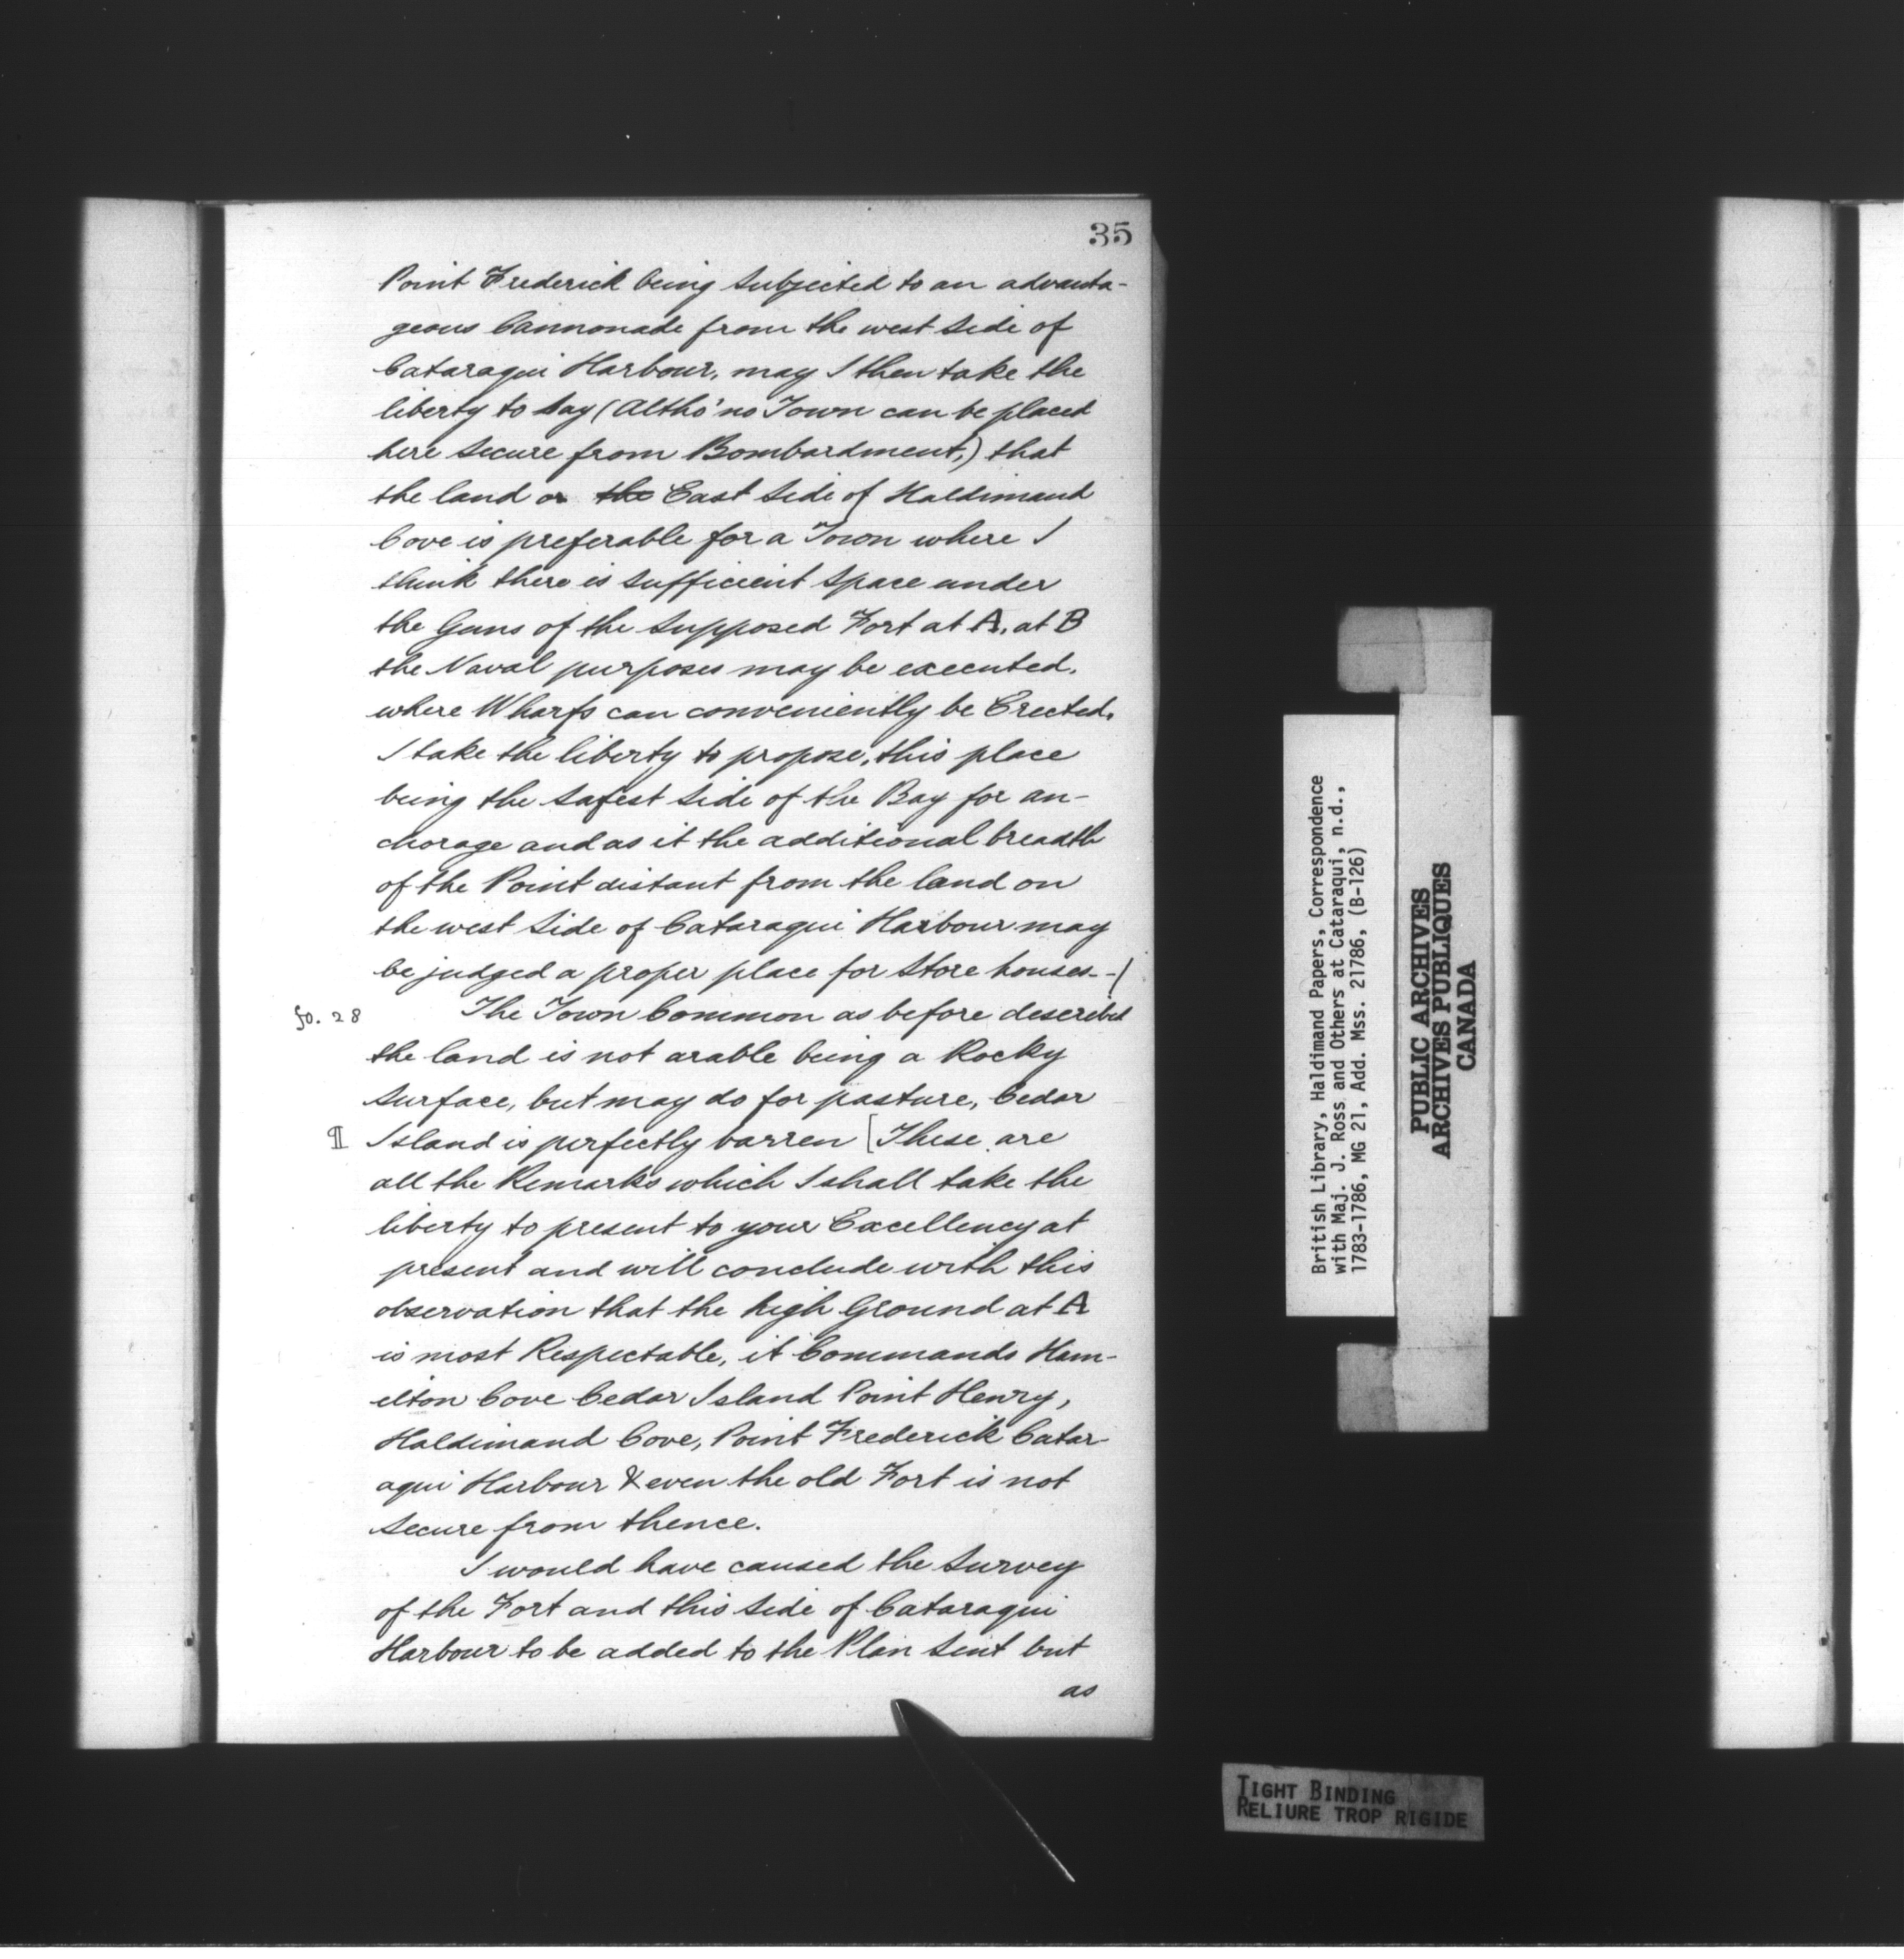 35
Point Frederick being subjected to an advanta-
geous Cannonade from the west side of
Cataraqui Harbour, may I then take the
liberty to say (Altho' no Town can be placed
here secure from Bombardment,) that
the land on the East side of Haldimand
Cove is preferable for a Town where I
think there is sufficient space under
the Guns of the supposed Fort at A, at B
the Naval purposes may be executed,
where Wharfs can conveniently be Erected,
I take the liberty to propose, this place
being the safest side of the Bay for an-
chorage and as it the additional breadth
of the Point distant from the land on
the west side of Cataraqui Harbour may
be judged a proper place for Store houses--/
fo. 28 The Town Common as before described
the land is not arable being a Rocky
surface, but may do for pasture, Cedar
¶ Island is perfectly barren [These are
all the Remarks which I shall take the
liberty to present to your Excellency at
present and will conclude with this
observation that the high Ground at A
is most Respectable, it Commands Ham-
ilton Cove Cedar Island Point Henry,
Haldimand Cove, Point Frederick Catar-
aqui Harbour & even the old Fort is not
secure from thence.
I would have caused the Survey
of the Fort and this side of Cataraqui
Harbour to be added to the Plan sent but
as
British Library, Haldimand Papers, Correspondence
with Maj. J. Ross and Others at Cataraqui, n.d.,
1783-1786, MG 21, Add. Mss. 21786, (B-126)
PUBLIC ARCHIVES
ARCHIVES PUBLIQUES
CANADA
TIGHT BINDING
RELIURE TROP RIGIDE